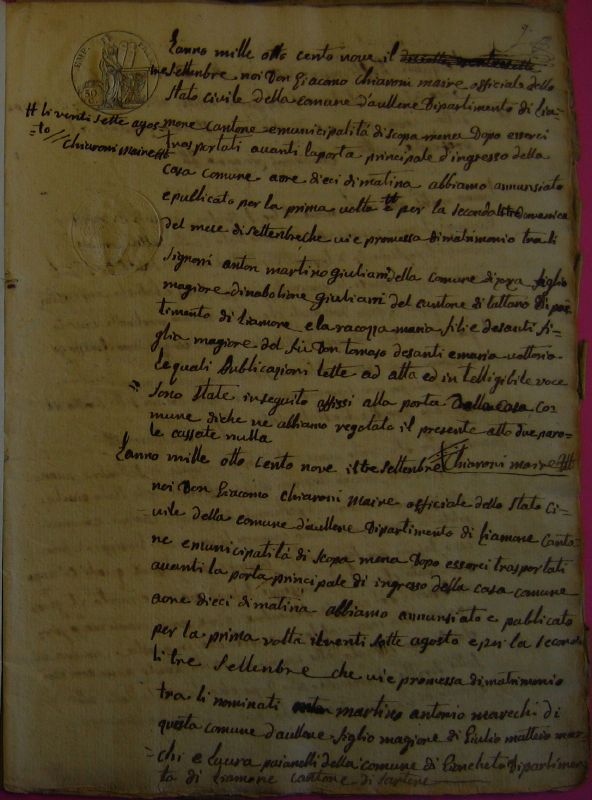 Lanno mille otto cento nove il
tre settembre noi Don Giacomo Chiaroni maire officiale dello
Stato Civile della comune daullene Dipartimento di Lia-
## li venti sette agos
to // Chiaroni Maire ##
mone cantone e municipalitá di scopa mena Dopo esserci
trasportati avanti la porta principale d'ingresso della
casa comune aore dieci di matina abbiamo annunsiato
e publicato per la prima volta ## e per la seconda Domenica
del mese di settembre che vi e promessa di matrimonio tra li
Signori anton martino giuliani della comune di figlio
magiore di nabolione giuliani del cantone di tallano Dipar
timento di liamone e la maria desanti fi-
glia magiore del fu Don tomaso desanti e maria vottoria
le quali Publicazioni lette ad alta ed in telligibile voce
sono state in seguito affissi alla porta Della Casa co-
mune di che ne abbiamo regotato il presente atto due paro-
le cassate nulla
Chiaroni maire ##
Lanno mille otto cento nove il tre settembre
noi Don Giacomo Chiaroni Maire officiale dello Stato Ci-
vile della comune d'aullene Dipartimento di Liamone Canto-
ne e municipalitá di Scopa mena Dopo esserci trasportati
avanti la porta principale di ingresso della casa comune
aore dieci di matina abbiamo annunsiato e publicato
per la prima volta il venti sette agosto e per la seconda
li tre settembre che vi e promessa di matrimonio
tra li nominati martino antonio marcchi di
questa comune daullene figlio magiore di Giulio matteio mar-
chi e Laura paianelli della comune di Loncheto Dipartimen-
to di Liamone cantone di Sartene